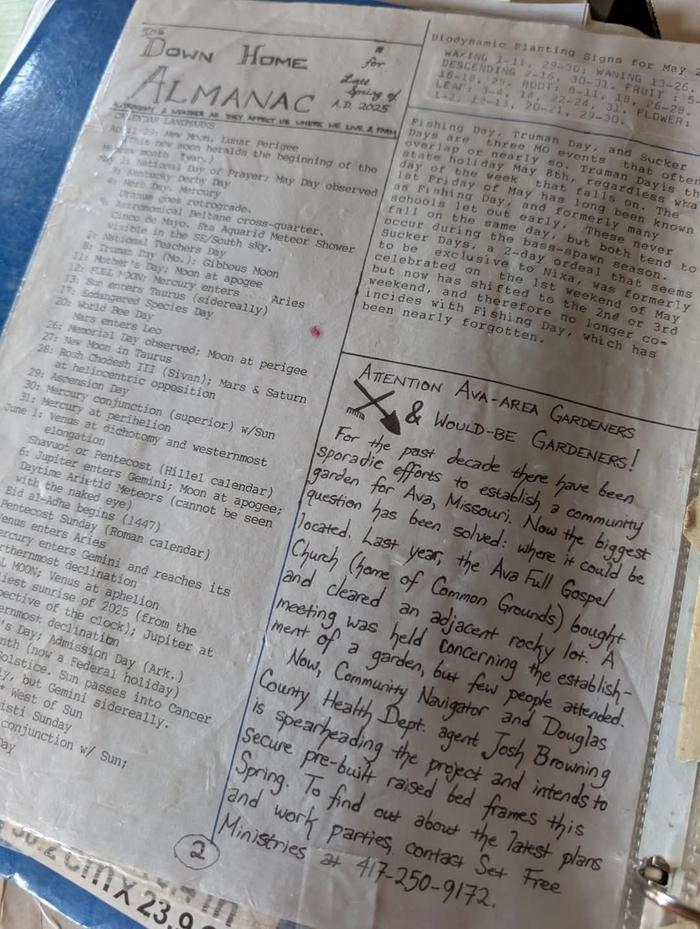 THE
DOWN HOME
ALMANAC
for
Late
Spring of
A.D. 2025
CALENDAR LANDMARKS
April 29: New Moon, Lunar Perigee
(This new moon heralds the beginning of the
month
1: National Day of Prayer; May Day observed
Kentucky Derby Day
Herb Day. Mercury
Uranus goes retrograde.
Astronomical Beltane cross-quarter.
Cinco de Mayo. Eta Aquarid Meteor Shower
visible in the SE/South sky.
National Teachers Day
8: Truman Day (Mo.); Gibbous Moon
11: Mother's Day; Moon at apogee
12: FULL MOON; Mercury enters Aries
Sun enters Taurus (sidereally)
Endangered Species Day
20: World Bee Day
Mars enters Leo
26: Memorial Day observed; Moon at perigee
27: New Moon in Taurus
28: Rosh Chodesh III (Sivan); Mars & Saturn
at heliocentric opposition
29: Ascension Day
30: Mercury conjunction (superior) w/Sun
31: Mercury at perihelion
June 1: Venus at dichotomy and westernmost
elongation
Shavuot or Pentecost (Hillel calendar)
6: Jupiter enters Gemini; Moon at apogee;
Daytime Arietid Meteors (cannot be seen
with the naked eye)
Eid al-Adha begins (1447)
Pentecost Sunday (Roman calendar)
enus enters Aries
ercury enters Gemini and reaches its
rthernmost declination
L MOON; Venus at aphelion
liest sunrise of 2025 (from the
pective of the clock); Jupiter at
ernmost declination
's Day; Admission Day (Ark.)
nth (now a Federal holiday)
olstice. Sun passes into Cancer
ly, but Gemini sidereally.
West of Sun
isti Sunday
conjunction w/ Sun;
Day
2
Biodynamic Planting Signs for May 2
WAXING 1-11, 29-30; WANING 13-26.
DESCENDING 2-16, 30-31. FRUIT:
16-18, 25. ROOT:
LEAF: 3-4, 22-24, 31. FLOWER:
1-2, 12-13, 20-21, 29-30.
Fishing Day, Truman Day, and Sucker
Days are three MO events that often
overlap or nearly so. Truman Day is th
state holiday May 8th, regardless wha
day of the week that falls on. The
1st Friday of May has long been known
as Fishing Day, and formerly many
schools let out early. These never
fall on the same day, but both tend to
occur during the bass-spawn season.
Sucker Days, a 2-day ordeal that seems
to be exclusive to Nixa, was formerly
celebrated on the 1st weekend of May
but now has shifted to the 2nd or 3rd
weekend, and therefore no longer co-
incides with Fishing Day, which has
been nearly forgotten.
ATTENTION AVA-AREA GARDENERS
& WOULD-BE GARDENERS!
For the past decade there have been
sporadic efforts to establish a community
garden for Ava, Missouri. Now the biggest
question has been solved: where it could be
located. Last year, the Ava Full Gospel
Church (home of Common Grounds) bought
and cleared an adjacent rocky lot. A
meeting was held concerning the establish-
ment of a garden, but few people attended.
Now, Community Navigator and Douglas
County Health Dept. agent Josh Browning
is spearheading the project and intends to
secure pre-built raised bed frames this
Spring. To find out about the latest plans
and work parties, contact Set Free
Ministries at 417-250-9172.